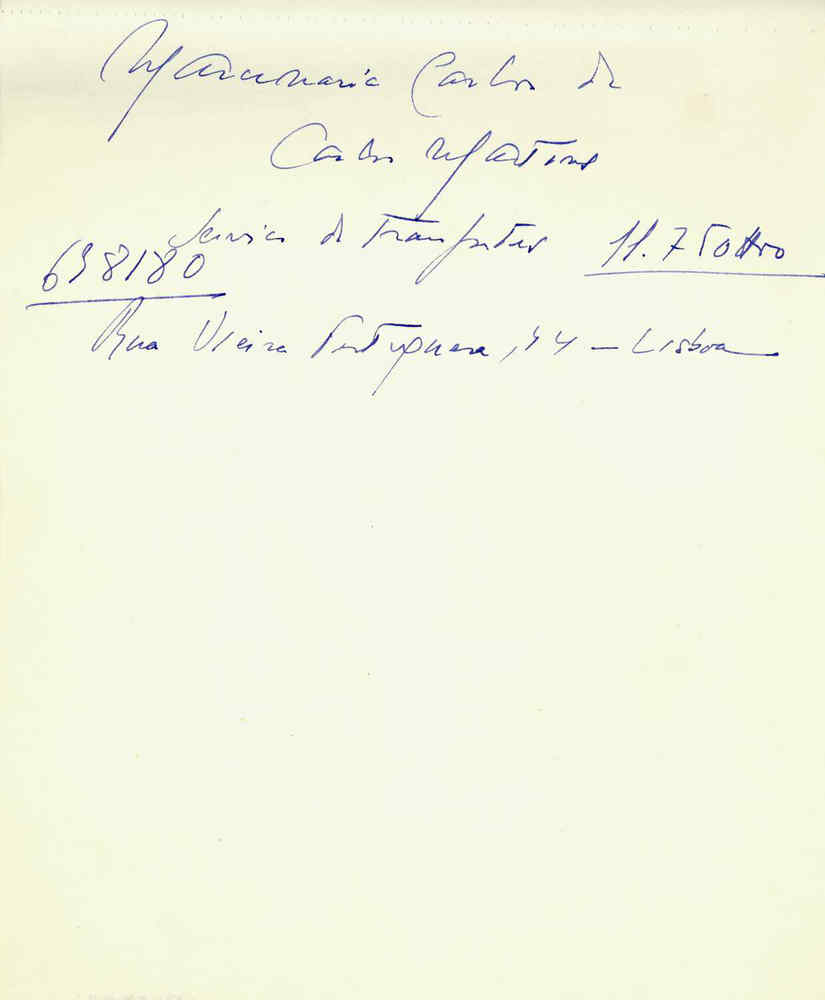 Marcenaria Carlos de
Carlos Martins
Serviço de transportes 11.750$00
698180
Rua Vieira Portuense, 44 - Lisboa